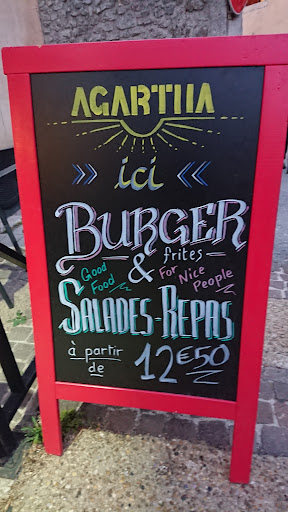 AGARTHA
ici
BURGER
frites
Good Food & For Nice People
SALADES-REPAS
à partir de 12€50